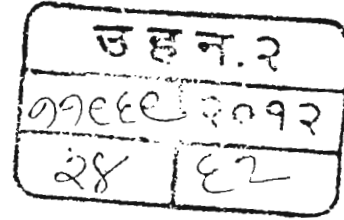 उहन.२
११९६९ २०१२
२४ ६२